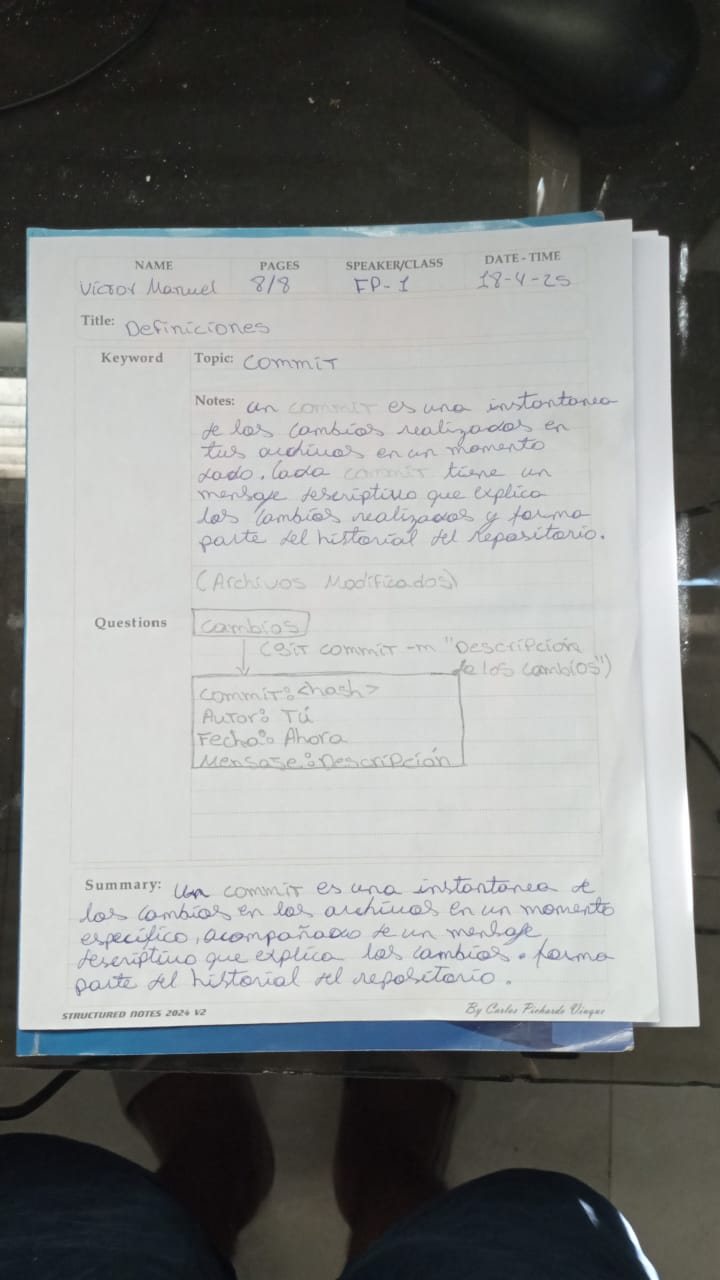 NAME PAGES SPEAKER/CLASS DATE - TIME
Víctor Manuel 8/8 FP-1 18-4-25
Title: Definiciones
Keyword Topic: Commit
Notes: un commit es una instantanea
de los cambios realizados en
tus archivos en un momento
dado. Cada commit tiene un
mensaje descriptivo que explica
los cambios realizados y forma
parte del historial del repositorio.
(Archivos Modificados)
Questions cambios
(git commit -m "Descripción
de los cambios")
commit: <hash>
Autor: Tú
Fecha: Ahora
Mensaje: Descripción
Summary: Un commit es una instantanea de
los cambios en los archivos en un momento
específico, acompañado de un mensaje
descriptivo que explica los cambios. forma
parte del historial del repositorio.
STRUCTURED NOTES 2024 V2 By Carlos Pichardo Viuque